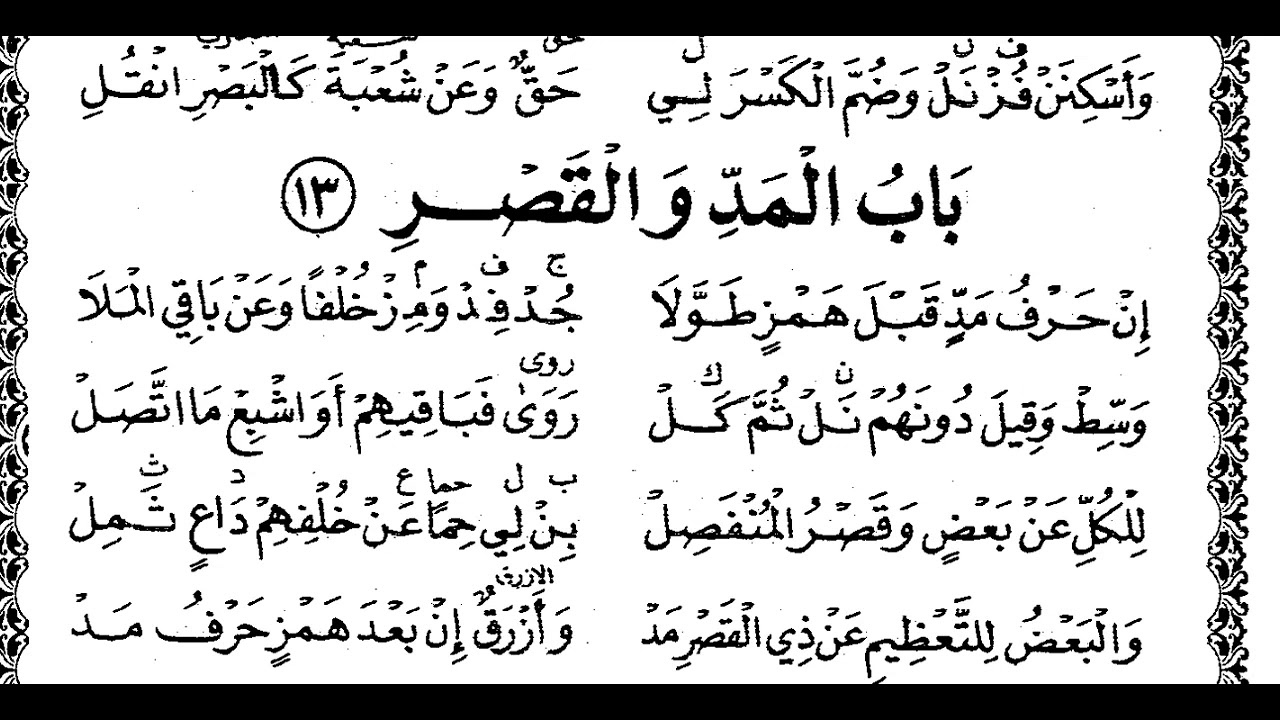 حق شعبة
ف ن ل
وَأَسْكِنَنْ فُزْ نَلْ وَضُمَّ الْكَسْرَ لِي حَقٌّ وَعَنْ شُعْبَةَ كَالْبَصْرِ انْقُلِ
بَابُ الْمَدِّ وَالْقَصْرِ ١٣
ج ف م
إِنْ حَرْفُ مَدٍّ قَبْلَ هَمْزٍ طَوَّلَا جُدْ فِدْ وَمِزْ خُلْفًا وَعَنْ بَاقِي الْمَلَا
ن ك روى
وَسِّطْ وَقِيلَ دُونَهُمْ نَلْ ثُمَّ كَلْ رَوَىٰ فَبَاقِيهِمْ أَوَاشْبِعْ مَا اتَّصَلْ
ب ل حما ع د ث
لِلْكُلِّ عَنْ بَعْضٍ وَقَصْرُ الْمُنْفَصِلْ بِنْ لِي حِمًا عَنْ خُلْفِهِمْ دَاعٍ ثَمِلْ
الازرق
وَالْبَعْضُ لِلتَّعْظِيمِ عَنْ ذِي الْقَصْرِ مَدْ وَأَزْرَقٌ إِنْ بَعْدَ هَمْزٍ حَرْفُ مَدْ